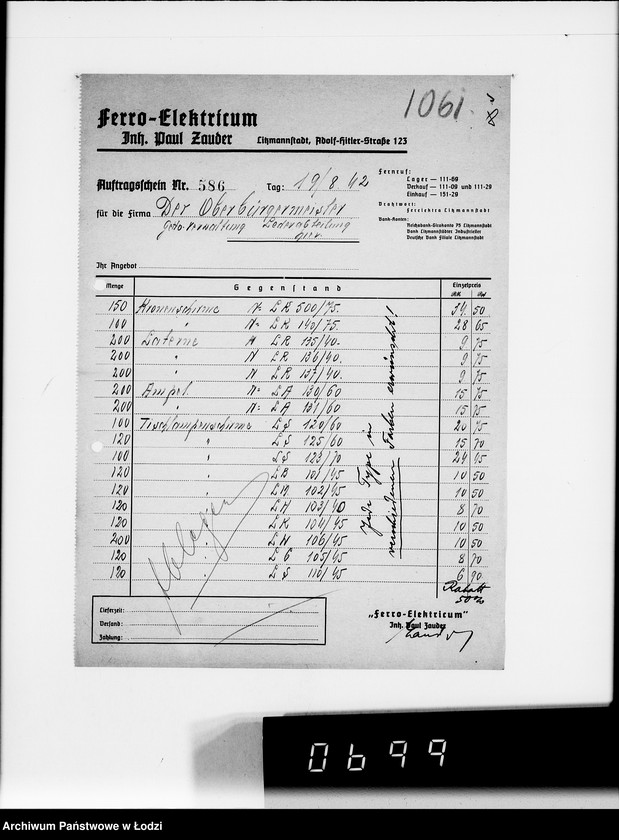 1061
Ferro-Elektricum
Inh. Paul Zauder Litzmannstadt, Adolf-Hitler-Straße 123
Fernruf:
Lager — 111-69
Verkauf — 111-09 und 111-29
Einkauf — 151-29
Drahtwort:
Ferelektra Litzmannstadt
Bank-Konten:
Reichsbank-Girokonto 75 Litzmannstadt
Bank Litzmannstädter Industrieller
Deutsche Bank Filiale Litzmannstadt
Auftragsschein Nr. 586 Tag: 19/8 42
für die Firma Der Oberbürgermeister
Getto-Verwaltung Lederabteilung
Ihr Angebot
Menge Gegenstand Einzelpreis
RM. Rpf.
150 Kronenschirme N: LK 500/75. 34 50
100 " N: LK 140/75. 28 65
200 Laterne N LR 135/40. 9 75
200 " N LR 136/40. 9 75
200 " N LR 137/40. 9 75
200 Ampel. N: LA 130/60 15 75
200 " N: LA 131/60 15 75
100 Tischlampenschirme LS 120/60 20 75
120 " LS 125/60 15 70
100 " LS 123/70 24 15
120 " LB 101/45 10 50
120 " 102/45 10 50
120 " LH 103/40 8 70
120 " LK 104/45 10 50
200 " LH 106/45 10 50
120 " 105/45 8 70
120 " LS 116/45 6 90
Jede Type in
verschiedenen Farben erwünscht!
Rabatt
50%
Lieferzeit:
Versand:
Zahlung:
„Ferro-Elektricum"
Inh. Paul Zauder
Zauder
0699
Archiwum Państwowe w Łodzi